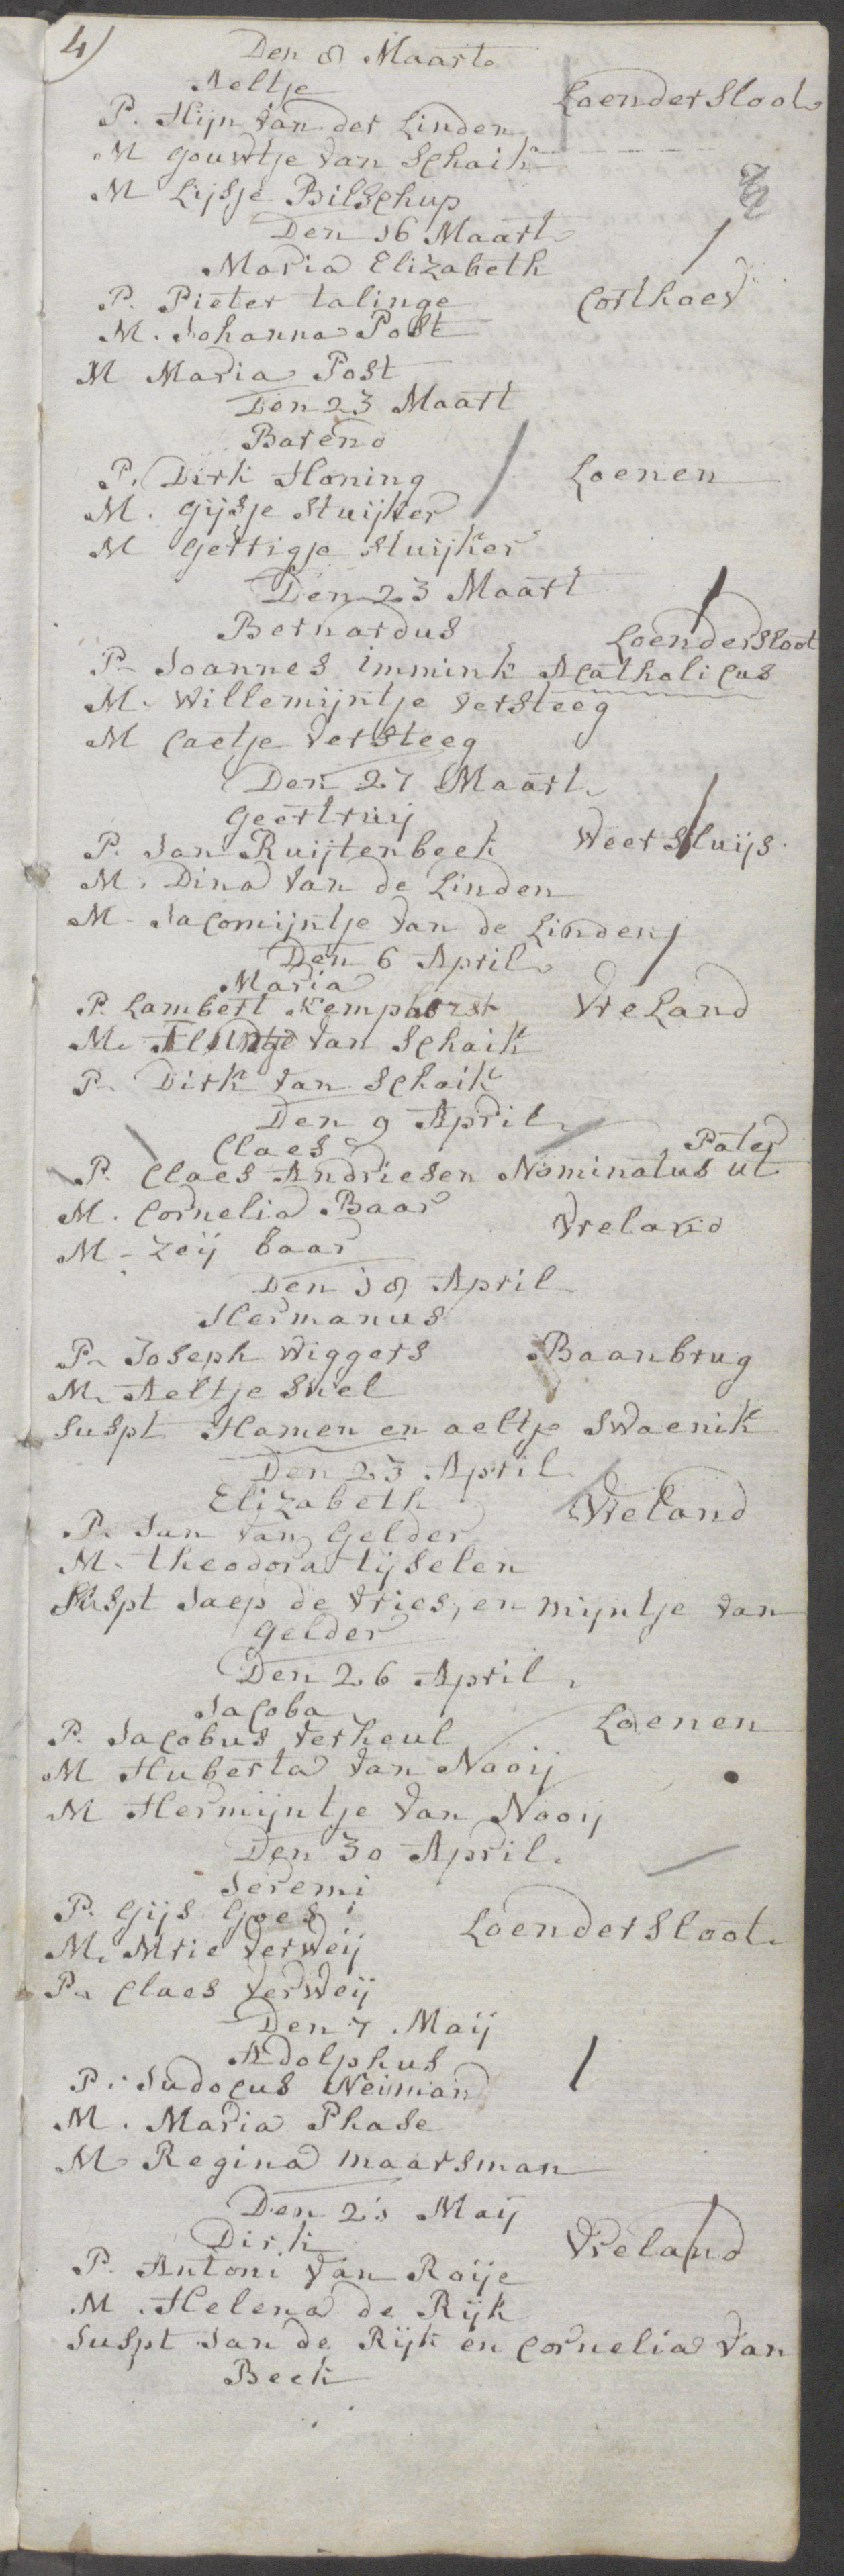 4)
Den 8 Maart
Aeltje
Loendersloot
P. Stijn van der Linden
M gouwtje van Schaik
M Lijsje Bilschup
Den 16 Maart
Maria Elizabeth
P. Pieter talinge Corthoev
M. Johanna Post
M Maria Post
Den 23 Maart
Barend
P. Dirk Honing Loenen
M. gijsje Stuijker
M gerrigje Stuijker
Den 23 Maart
Bernardus Loendersloot
P. Joannes immink Acatholicus
M. Willemijntje versteeg
M Caetje versteeg
Den 27 Maart
geertruij
P. Jan Ruijtenbeek Weersluijs
M. Dina van de Linden
M. Jacomijntje van de Linden
Den 6 April
Maria
P. Lambert Kemphorst Vreland
M. van Schaik
P. Dirk van Schaik
Den 9 April
Claes Pater
P. Claes Andriesen Nominatus ut
M. Cornelia Baar
Vreland
M - Zeij baar
Den 18 April
Hermanus
P. Joseph Wiggers Baanbrug
M. Aeltje Snel
Suspt Hamen en aeltje Swaenik
Den 23 April
Elizabeth Vreland
P. Jan van Gelder
M. theodora tijselen
Suspt Jaep de vries, en mijntje van
gelder
Den 26 April
Jacoba Loenen
P. Jacobus verheul
M Huberta van Nooij
M Hermijntje van Nooij
Den 30 April.
Jeremi
P. Gijs Goes
Loendersloot
M. Mrie verweij
P. Claes verweij
Den 7 Maij
Adolphus
P. Judocus Neiman
M. Maria Phase
M Regina maarsman
Den 21 Maij
Dirk Vreland
P. Antoni van Roije
M. Helena de Rijk
Suspt Jan de Rijk en Cornelia van
Beek